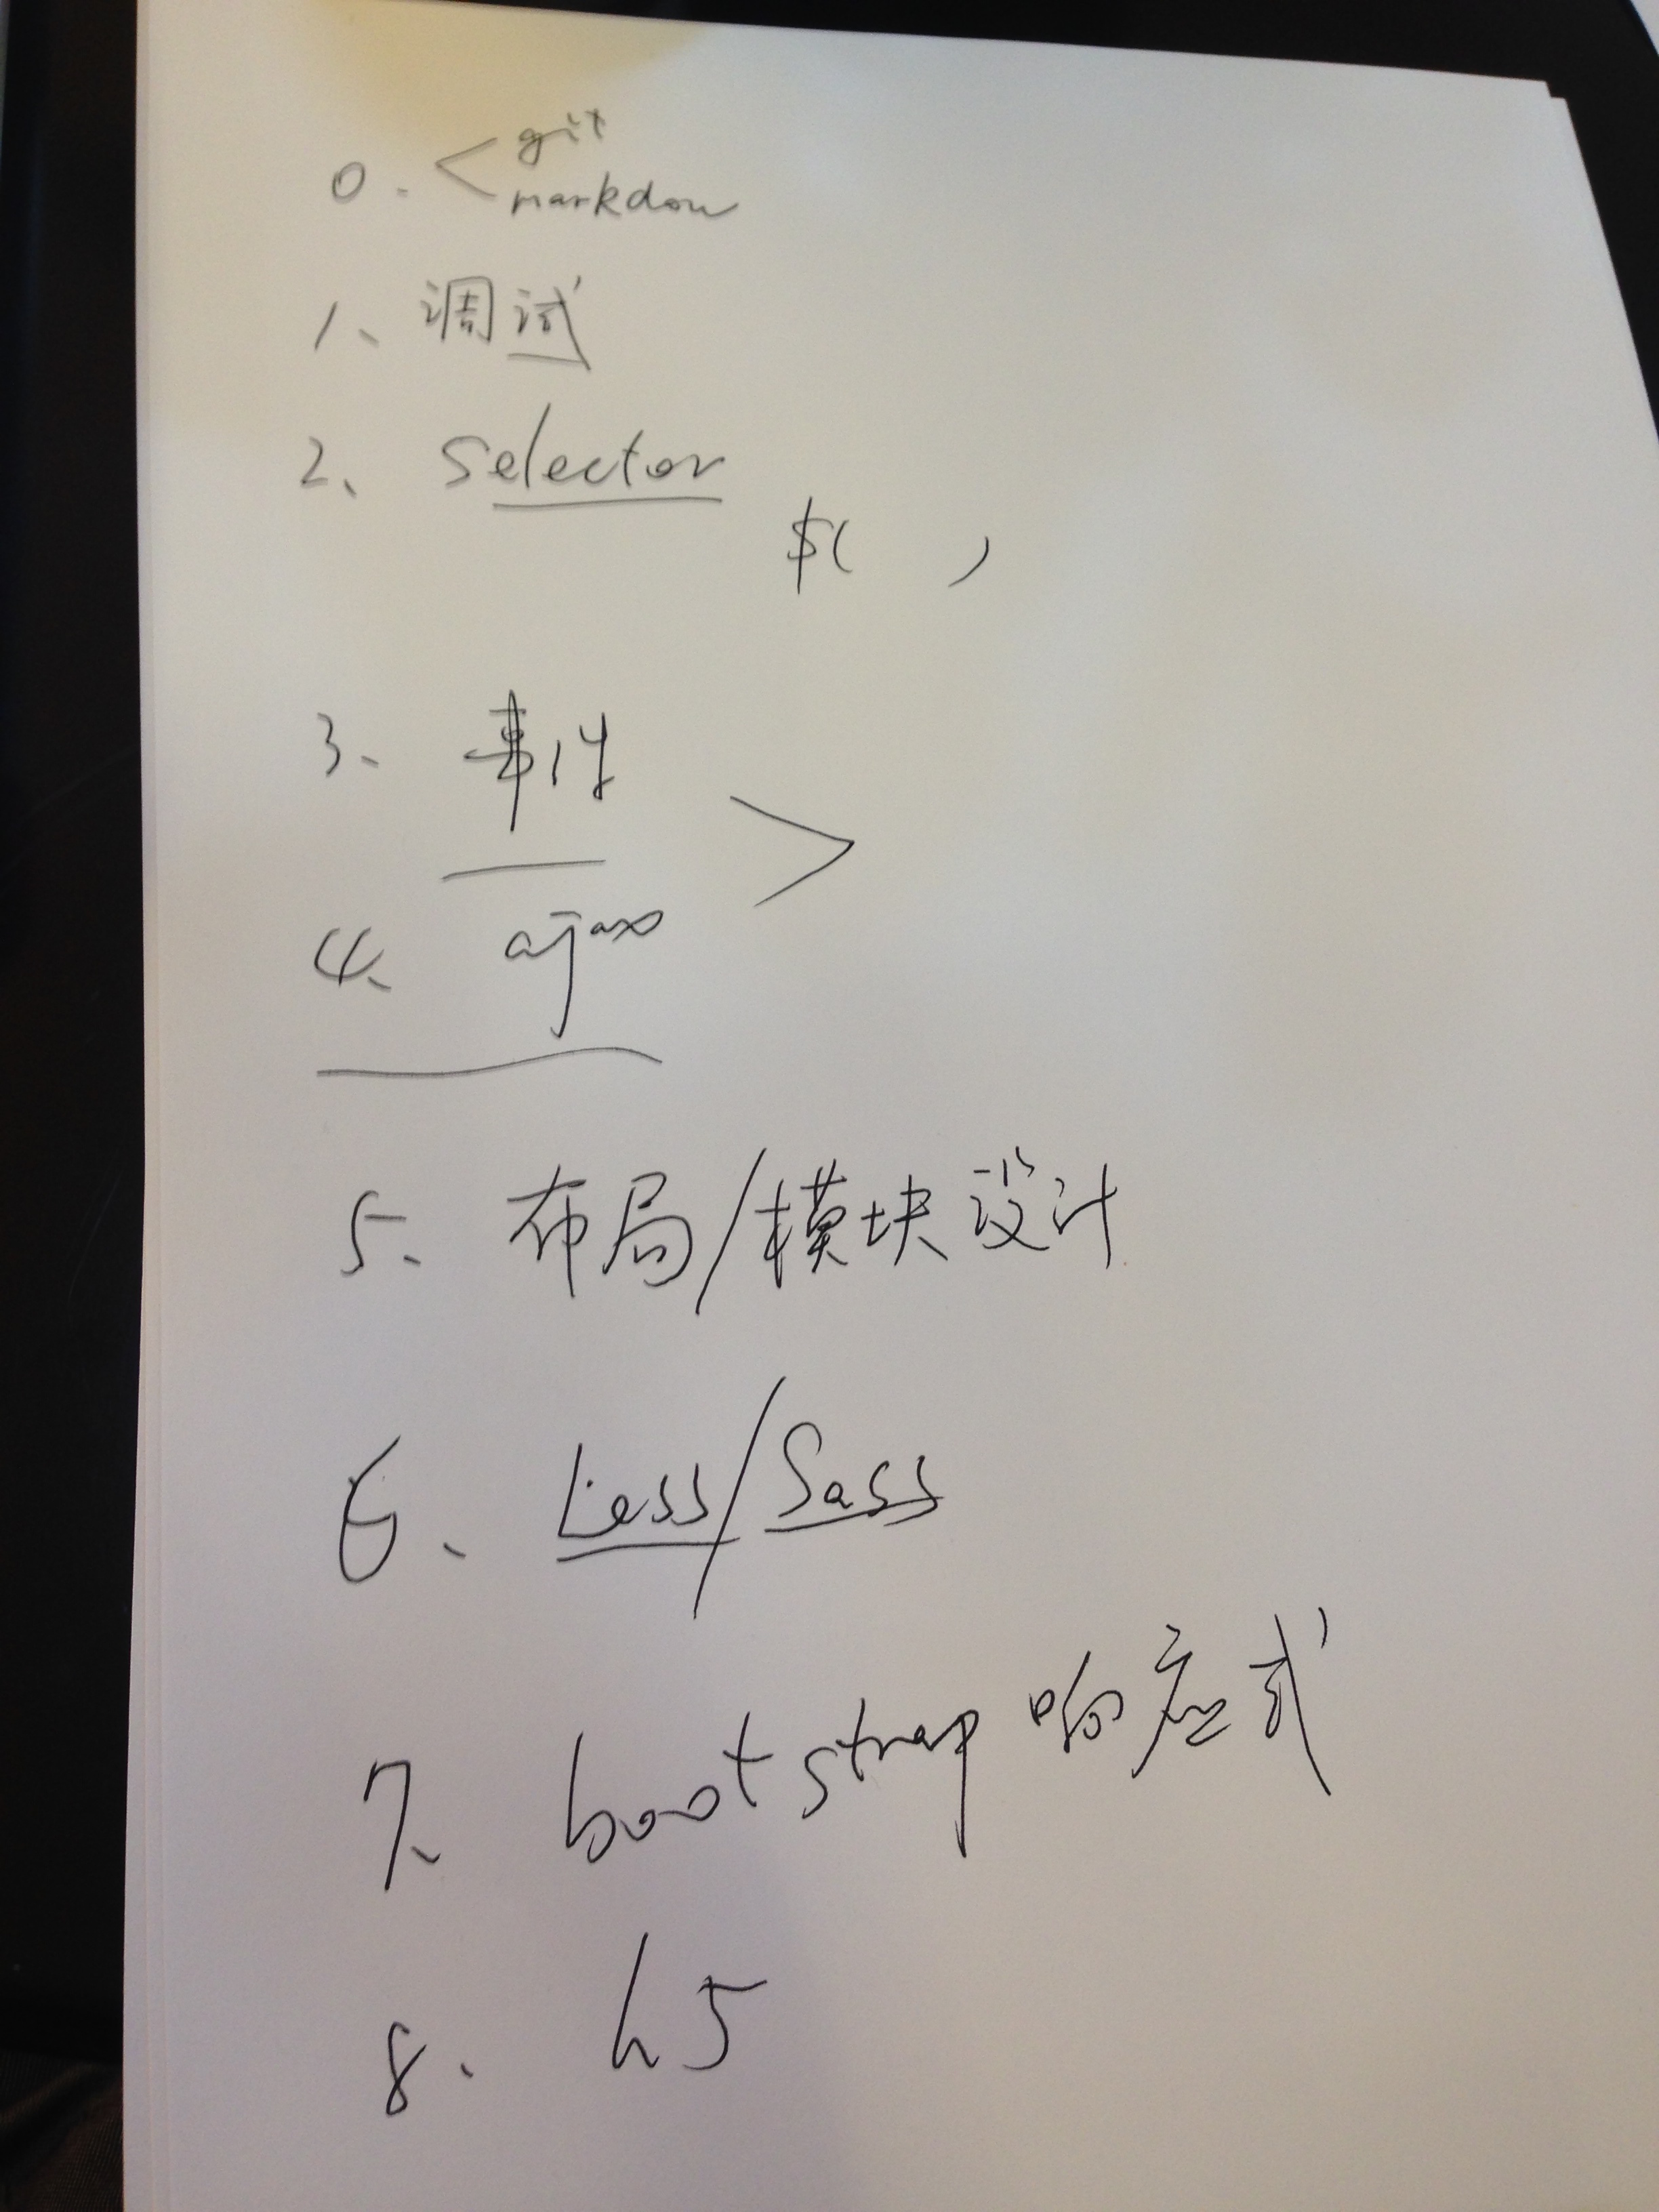 0. < git
markdow
1、调试
2、Selector
$( )
3、事件
4、ajax
5、布局/模块设计
6、Less/Sass
7、bootstrap 响应式
8、h5